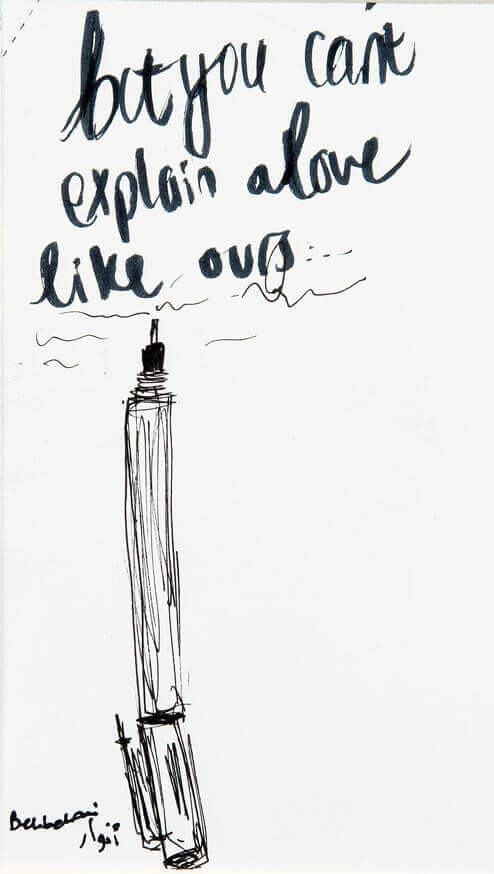 but you can't
explain a love
like ours
Behbehani
أنوار